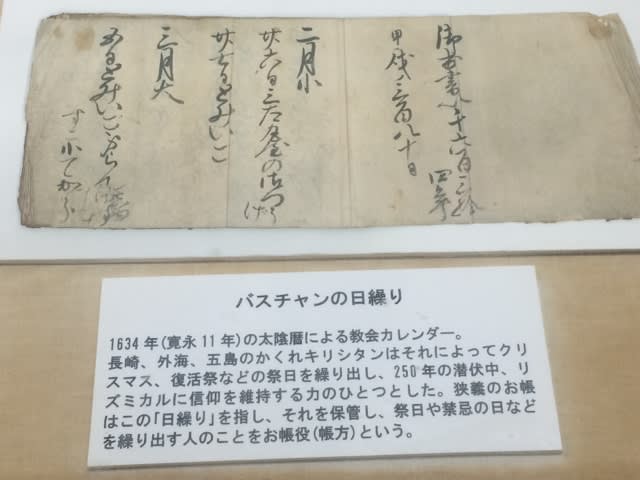 千六百三拾
四年
甲戌ノ三百八十日
二月小
廿六日
とみいこ
三月大
とみいご
バスチャンの日繰り
1634年(寛永11年)の太陰暦による教会カレンダー。
長崎、外海、五島のかくれキリシタンはそれによってクリ
スマス、復活祭などの祭日を繰り出し、250年の潜伏中、リ
ズミカルに信仰を維持する力のひとつとした。狭義のお帳
はこの「日繰り」を指し、それを保管し、祭日や禁忌の日など
を繰り出す人のことをお帳役(帳方)という。